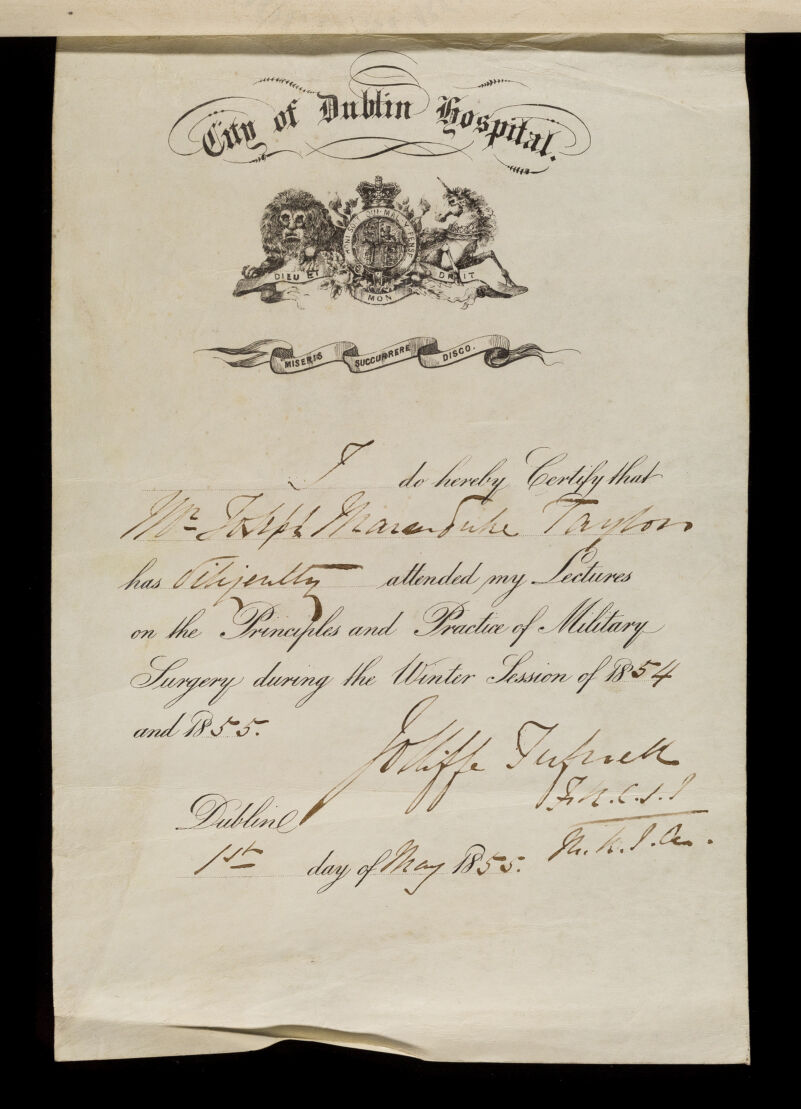 City of Dublin Hospital.
HONI SOIT QUI MAL Y PENSE
DIEU ET MON DROIT
MISERIS SUCCURRERE DISCO.
I do hereby Certify that
Mr Joseph Marmaduke Taylor
has diligently attended my Lectures
on the Principles and Practice of Military
Surgery during the Winter Session of 1854
and 1855.
Jolliffe Tufnell
F.R.C.S.I
Dublin
M.R.I.A.
1st day of May 1855.